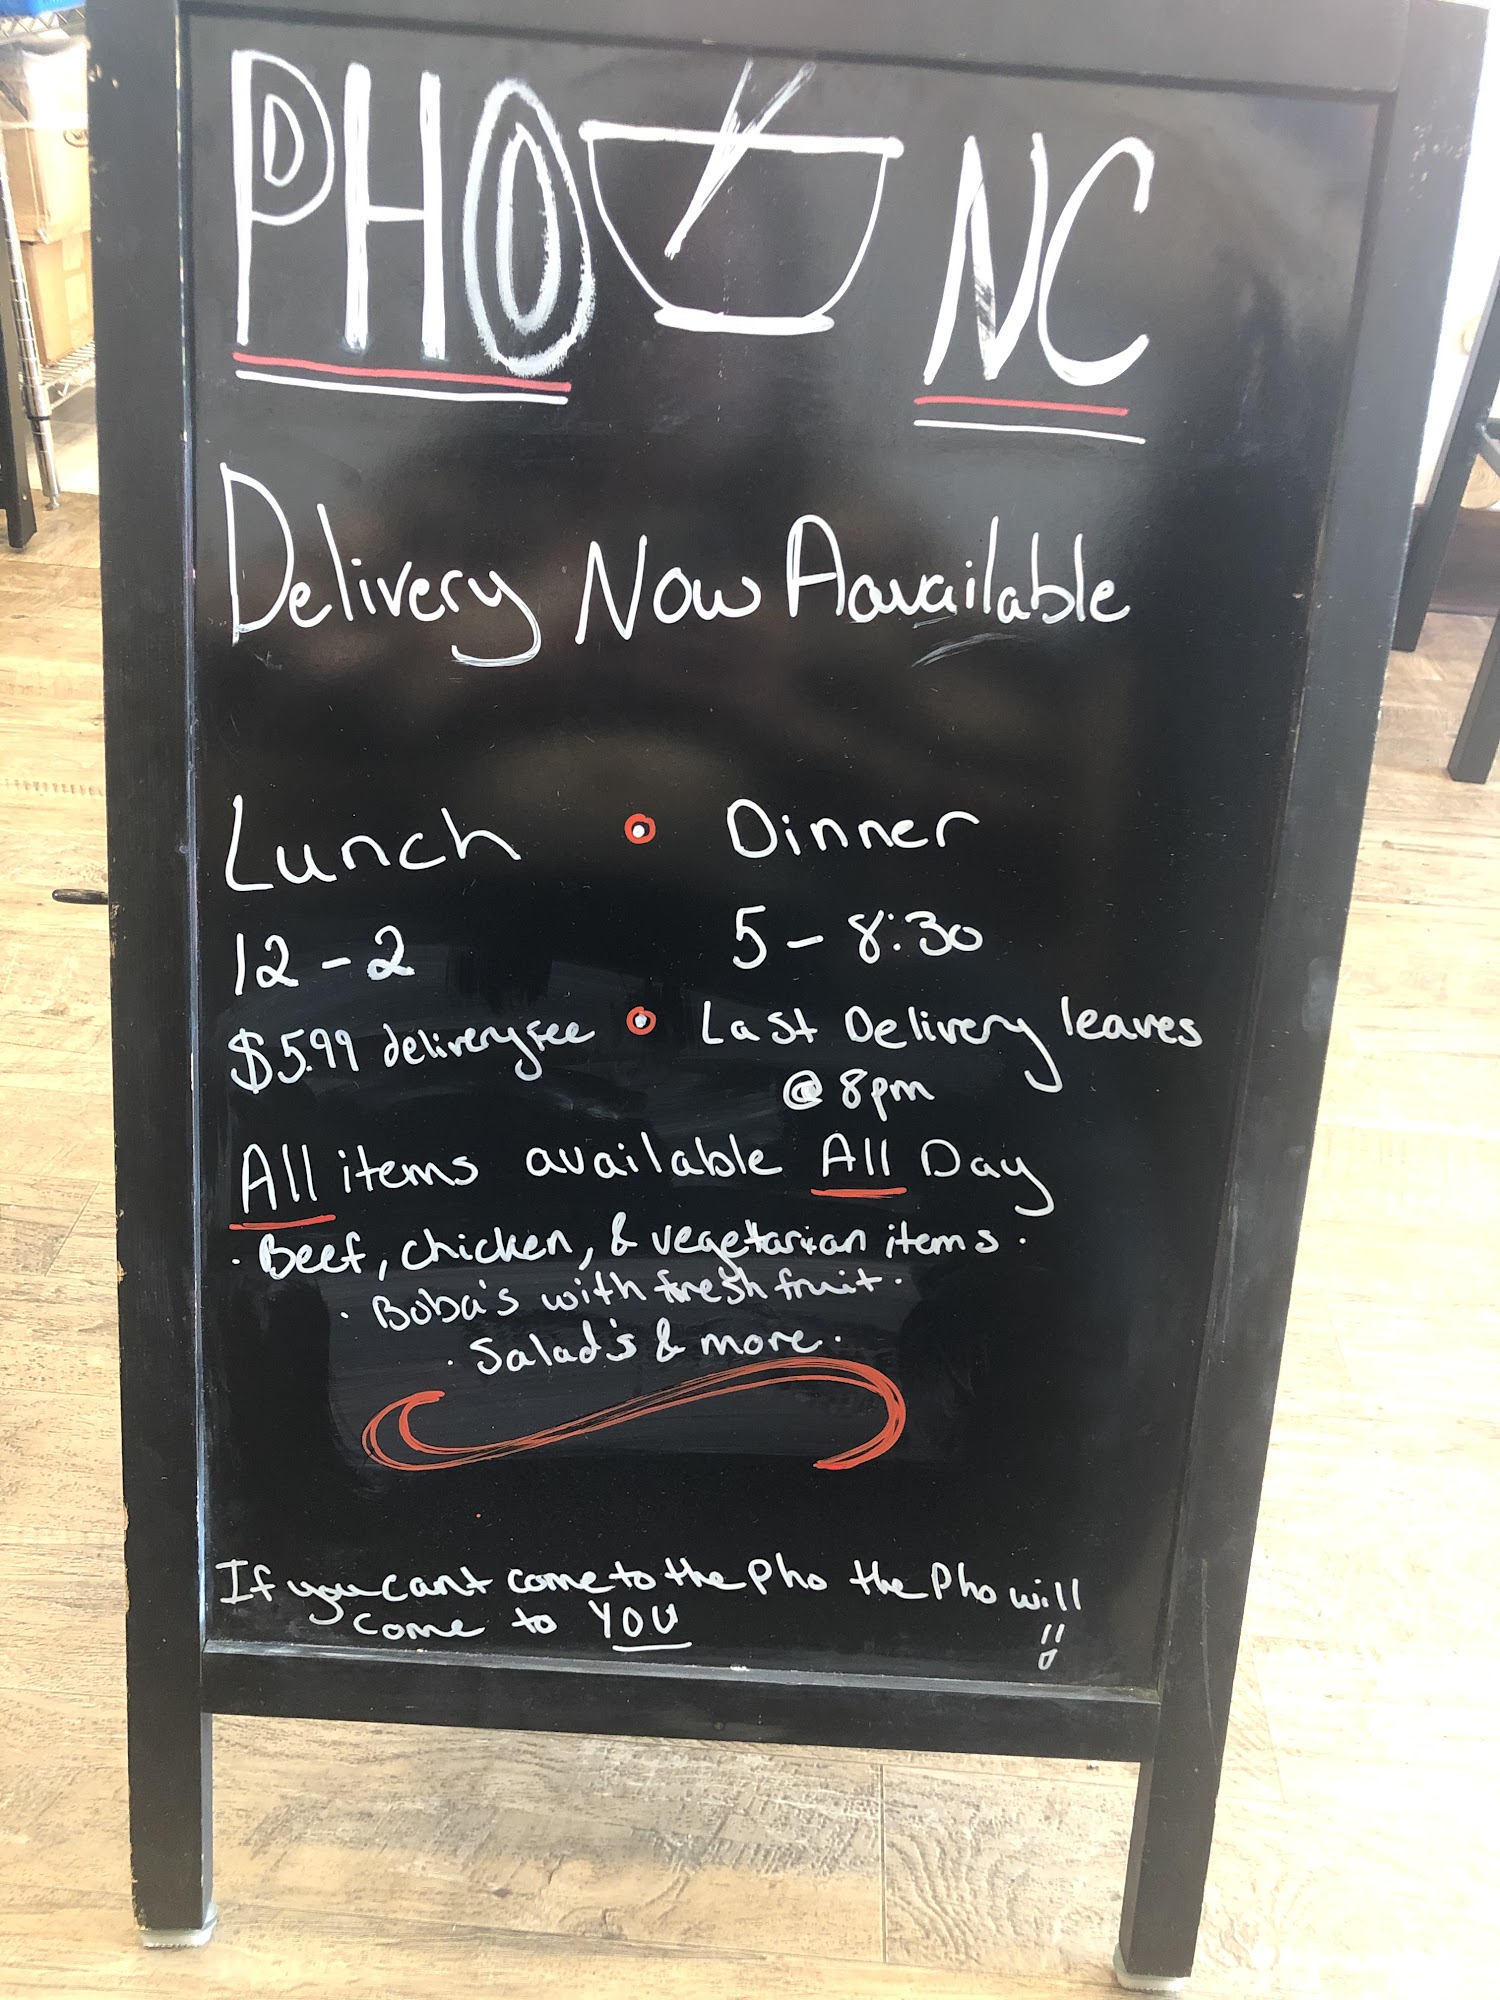 PHO NC
Delivery Now Aavailable
Lunch Dinner
12 - 2 5 - 8:30
$5.99 delivery fee Last Delivery leaves
@ 8pm
All items available All Day
· Beef, chicken, & vegetarian items ·
· Boba's with fresh fruit ·
· Salad's & more ·
If you cant come to the Pho the Pho will
come to YOU !!